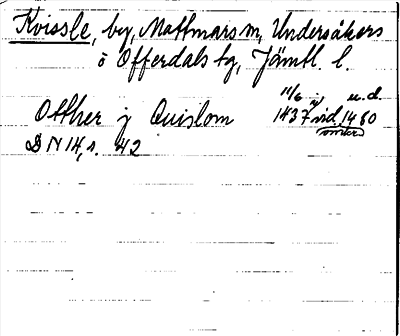 Kvissle, by, Mattmars sn, Undersåkers
o Offerdals tg, Jämtl. l.
Otther j Quislom 11/6 u.d.
1437 vid. 1480
DN 14, s. 42